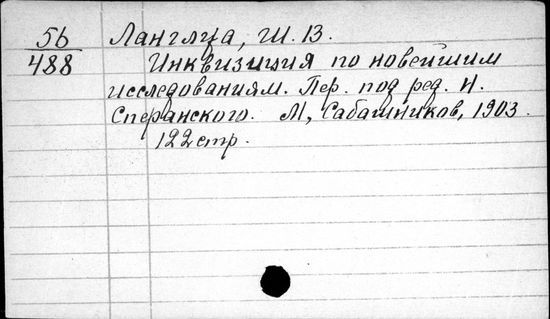 56
488
Ланглуа, Ш. В.
Инквизиция по новейшим
исследованиям. Пер. под ред. Н.
Сперанского. М, Сабашников, 1903.
122 стр.